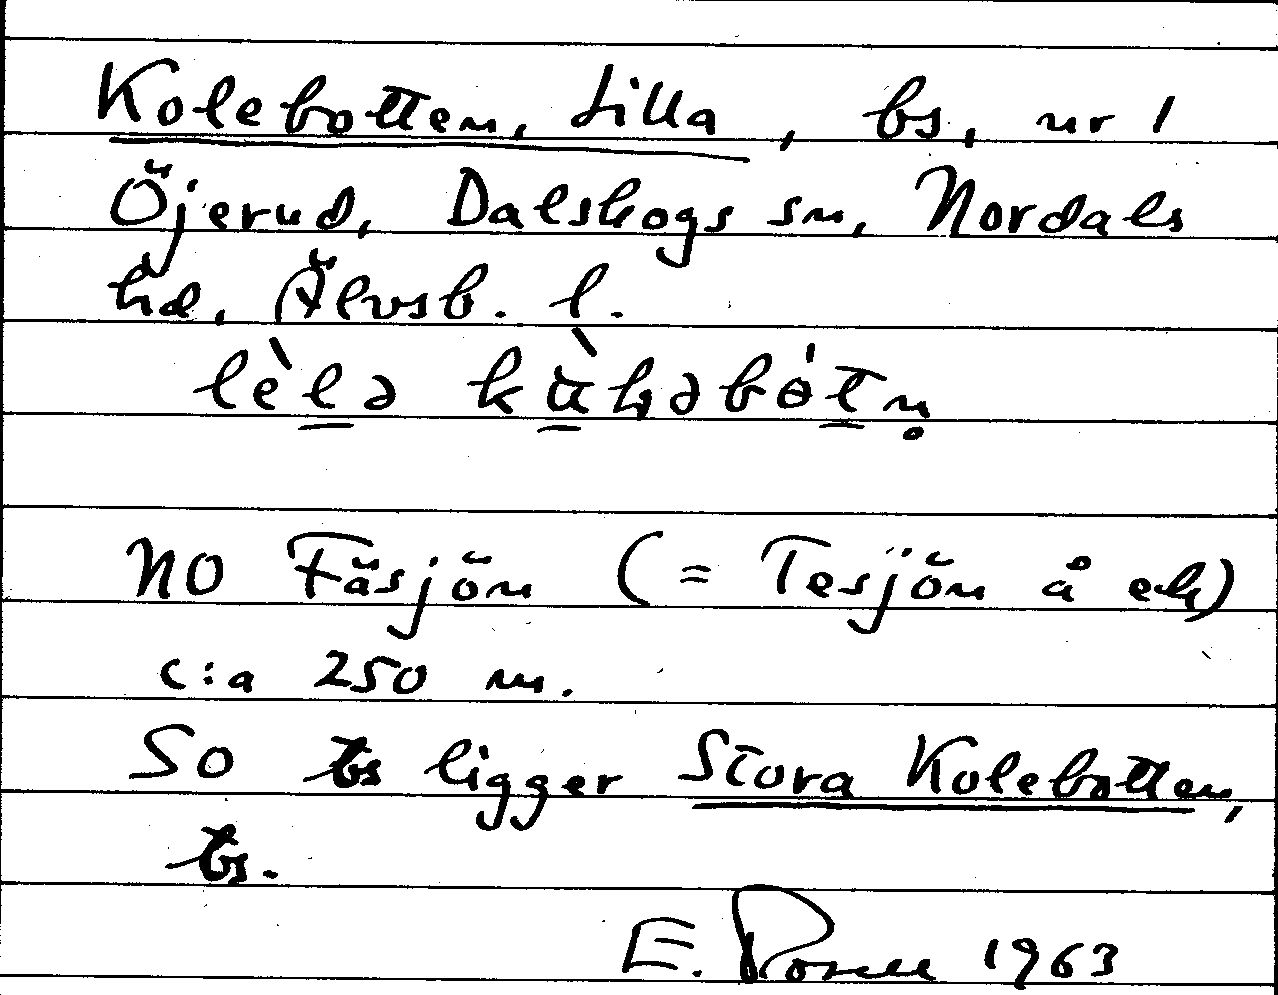 Kolebotten, Lilla, bs, nr 1
Öjerud, Dalskogs sn, Nordals
hd, Älvsb. l.
NO Fäsjön (= Tesjön å ek)
c:a 250 m.
SO bs ligger Stora Kolebotten,
bs.
E. 1963